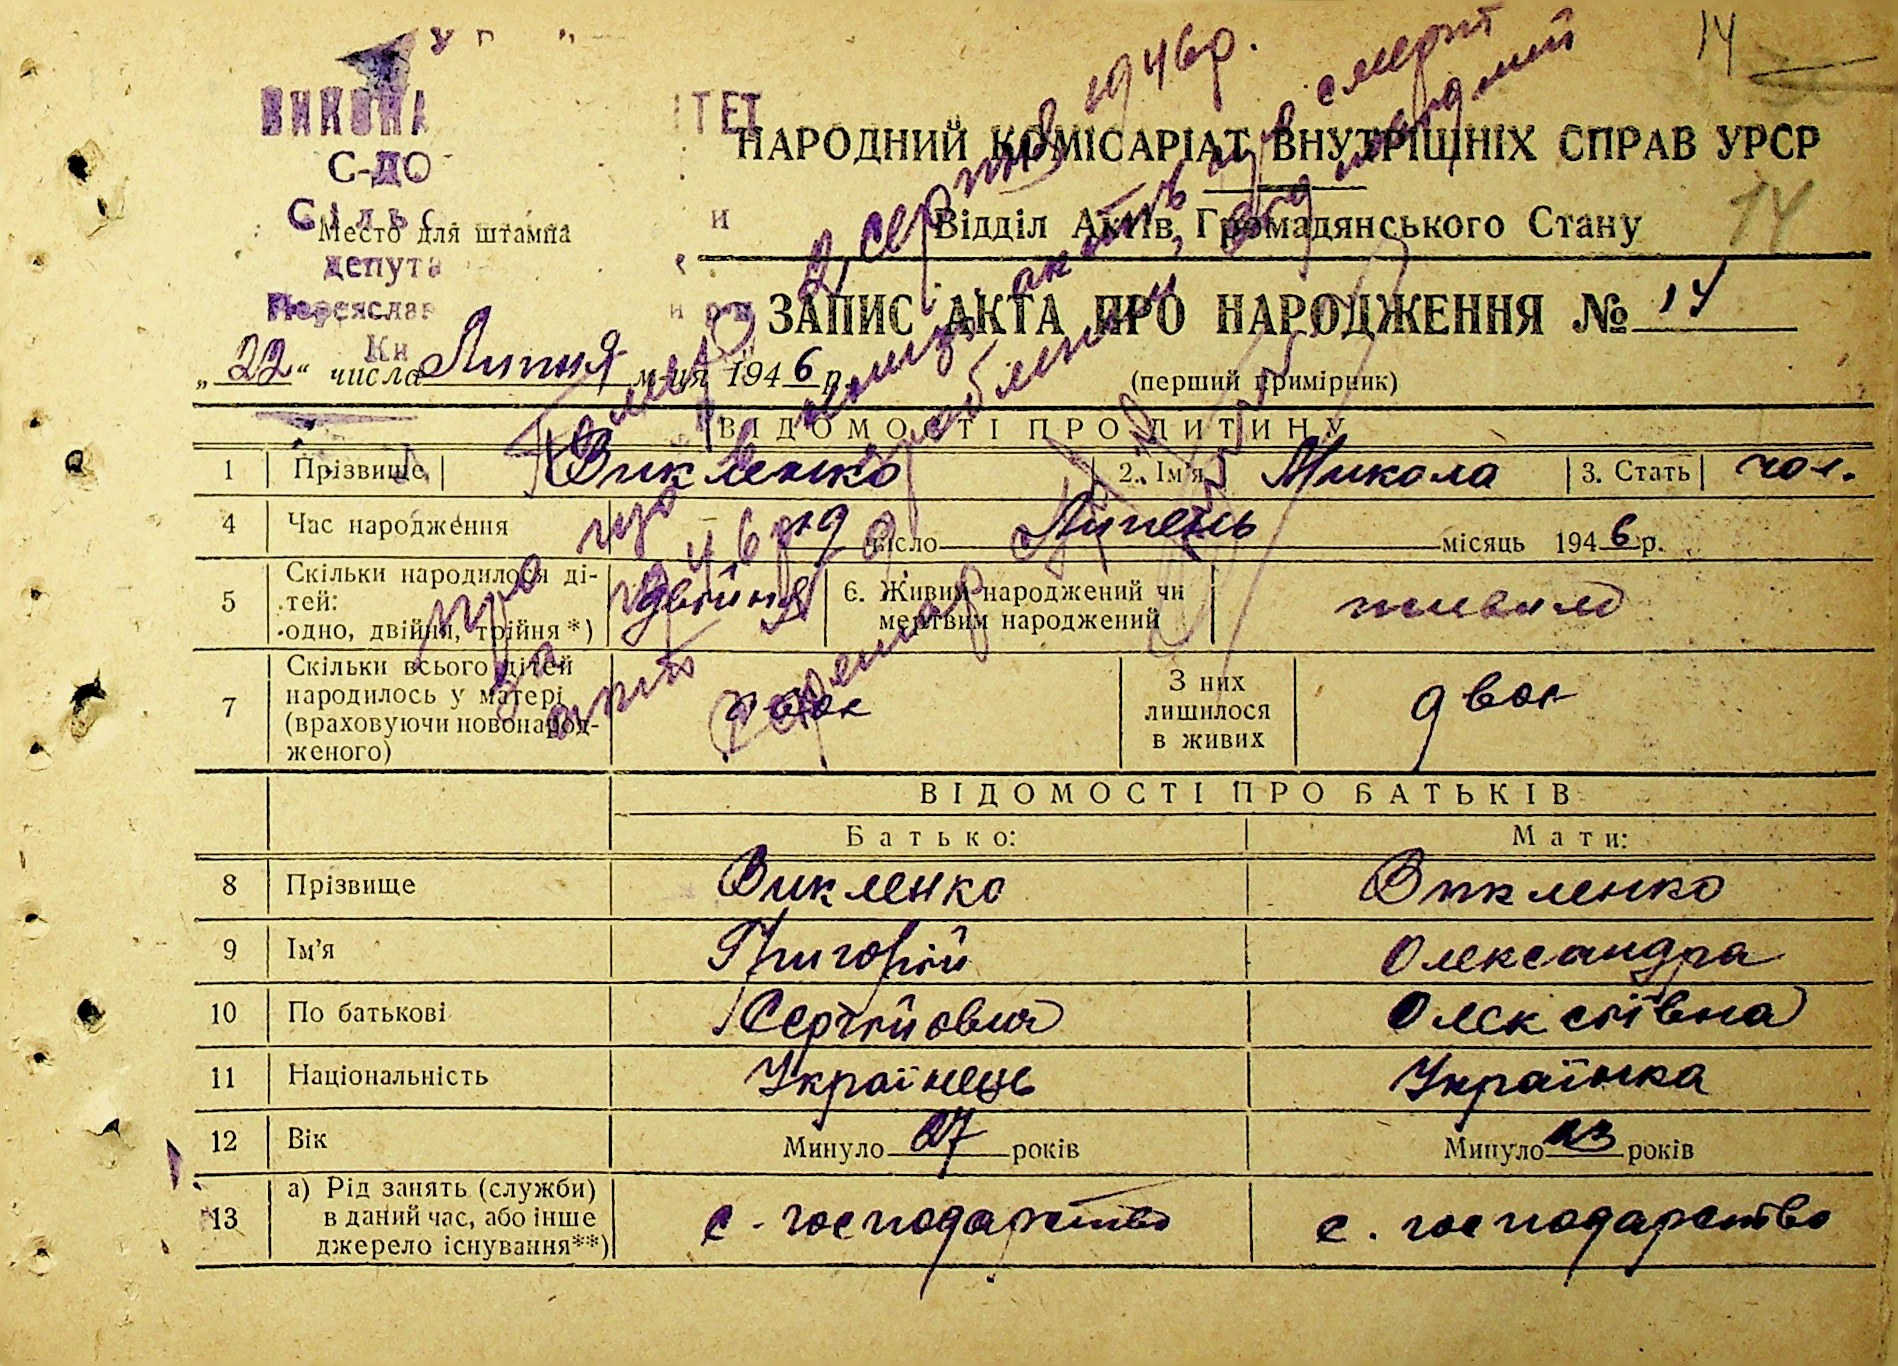 14
ВИКОНА ІТЕТ
С-ДО
НАРОДНИЙ КОМІСАРІАТ ВНУТРІШНІХ СПРАВ УРСР
Сільс и
Место для штампа
Відділ Актів Громадянського Стану
14
депута
Переяслав
ЗАПИС АКТА ПРО НАРОДЖЕННЯ № 14
Ки
„22“ числа Липня м-ця 1946 р.
(перший примірник)
ВІДОМОСТІ ПРО ДИТИНУ
1 Прізвище Викленко 2. Ім'я Микола 3. Стать чол.
4 Час народження 19 число Липень місяць 1946 р.
5 Скільки народилося ді-
тей:
одно, двійня, трійня*) двійня
6. Живим народжений чи
мертвим народжений живим
7 Скільки всього дітей
народилось у матері
(враховуючи новонарод-
женого) двох
З них
лишилося
в живих
двох
ВІДОМОСТІ ПРО БАТЬКІВ
Батько: Мати:
8 Прізвище Викленко Викленко
9 Ім'я Григорій Олександра
10 По батькові Сергійович Олексіївна
11 Національність Українець Українка
12 Вік Минуло 27 років Минуло 23 років
13 а) Рід занять (служби)
в даний час, або інше
джерело існування**) с. господарство с. господарство
Помер 2 серпня 1946 р.
про що є запис актів про смерть